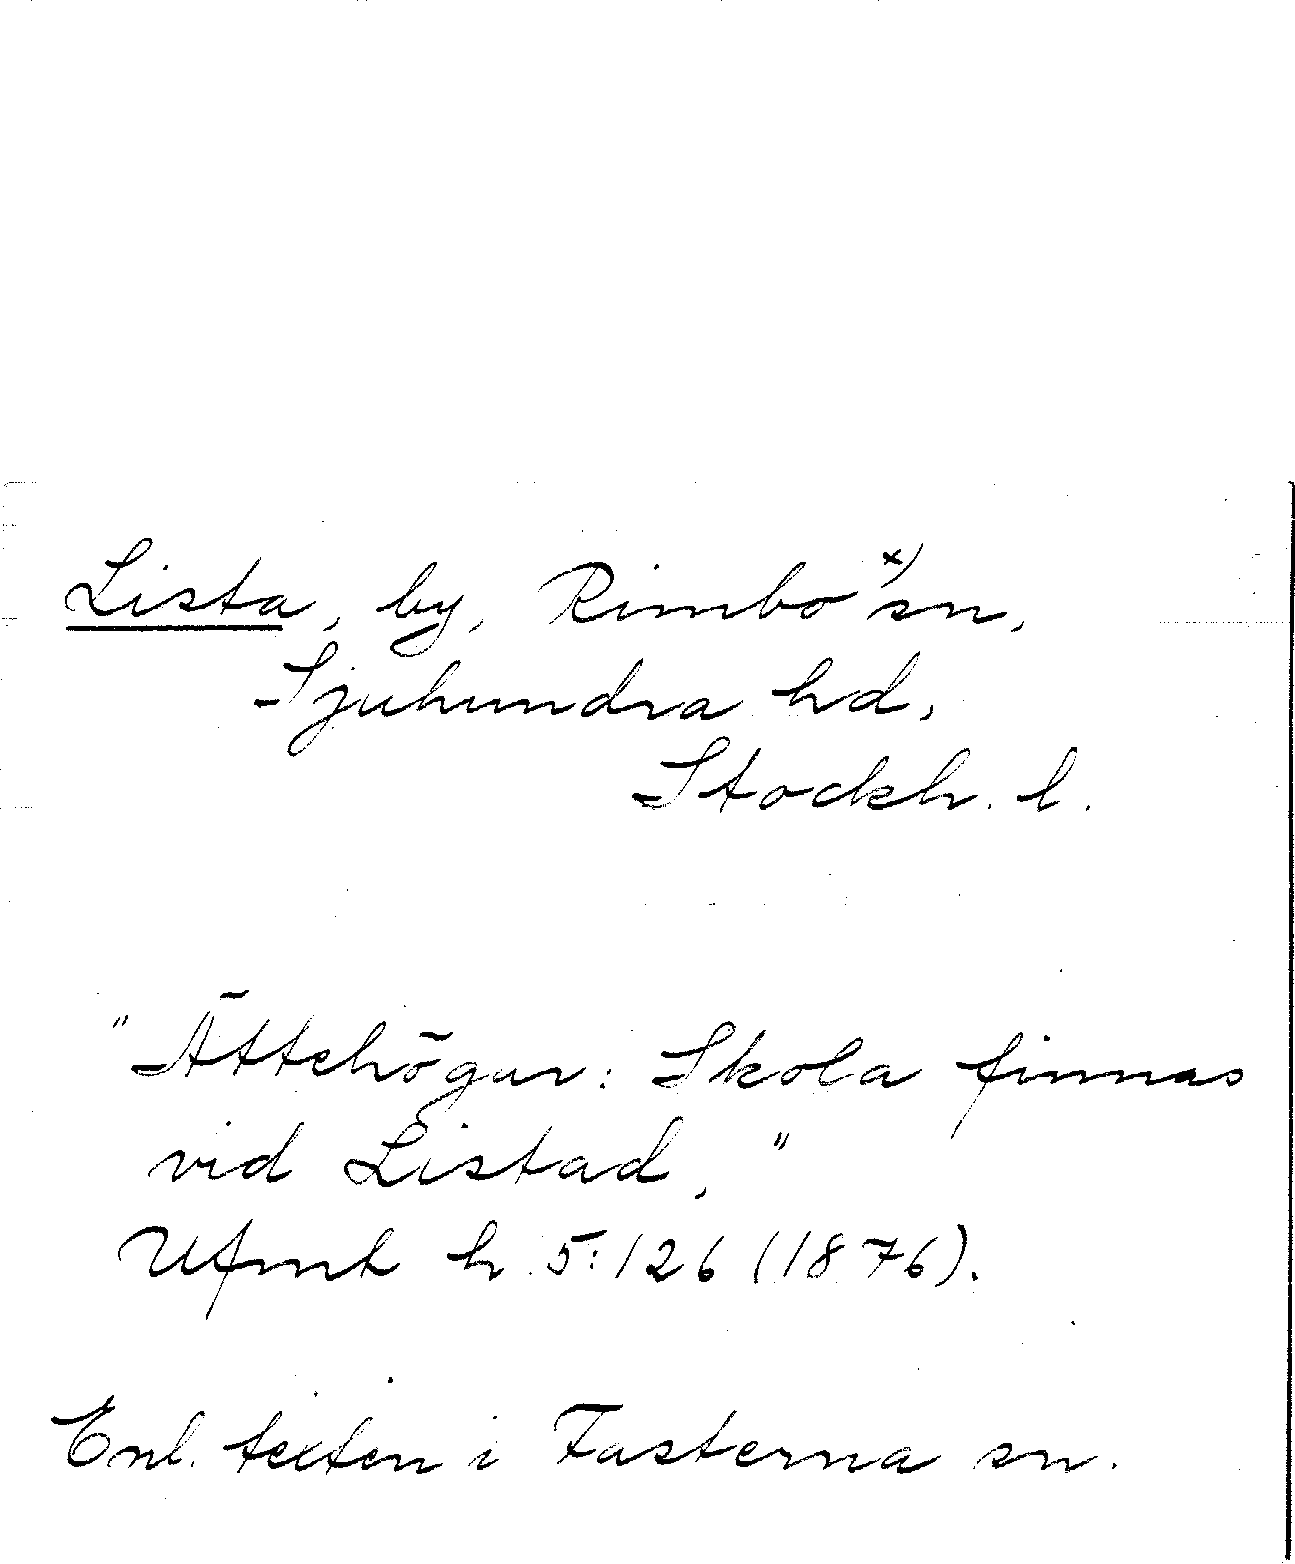 Lista, by, Rimbo x) sn,
Sjuhundra hd,
Stockh. l.
"Ättehögar: Skola finnas
vid Listad,"
Ufmt h 5:126 (1876).
Enl. texten i Fasterna sn.